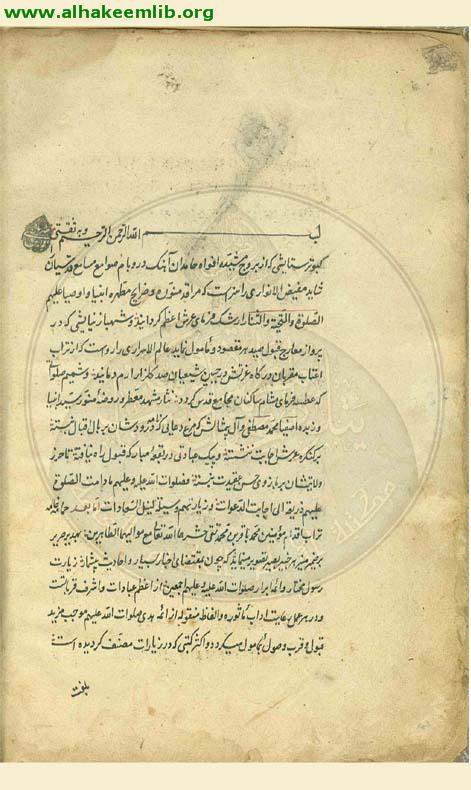 www.alhakeemlib.org
بسم الله الرحمن الرحیم وبه ثقتی
کبوتر ستایشی که از بروج مشیده افواه حامدان آهنک در وبام صوامع مسامع قدسیان
نماید مفیض الانواری را سزاست که مراقد منوره و ضرایح مطهره انبیا و اوصیا علیهم
الصلوة والتحیة والثنا را رشک فرمای عرش اعظم کردانید و شهباز نیایشی که در
پرواز معارج قبول صید هر مقصود و مأمول نماید عالم الاسراری را رواست که از تراب
اعتاب مقربان درکاه عزتش در جبین شیعیان صد کلزار ارم دمانید و شمیم صلواتی
که عطسه فرمای مشام ساکنان مجامع قدس کردد نثار مشهد معطر و روضه منور سید انبیا
و زبده اصفیا محمد مصطفی و آل
برکنکره عرش اجابت ننشسته و پیک عبادتی در بقعه مبارکه قبول راه نیافته تا حرز
ولایتشان بر بازوی حسن عقیدت نبسته فصلوات الله علیه وعلیهم مادامت الصلوة
علیهم ذریعة الی اجابت الدعوات و زیارتهم وسیلة لنیل السعادات اما بعد
تراب اقدام مؤمنین محمد باقر بن محمد تقی حشرهما الله تعالی مع موالیهما الطاهرین
بر ضمیر منیر هر خبیر بصیر تصویر مینماید که چون بمقتضای اخبار بسیار و احادیث بیشمار زیارت
رسول مختار وائمه ابرار صلوات الله علیه وعلیهم اجمعین از اعظم عبادات و اشرف قرباتست
و در هر عمل رعایت اداب مأثوره و الفاظ منقوله از ائمه هدی صلوات الله علیهم موجب مزید
قبول و قرب وصول بمأمول میکردد و اکثر کتبی که در زیارات مصنف کردیده است